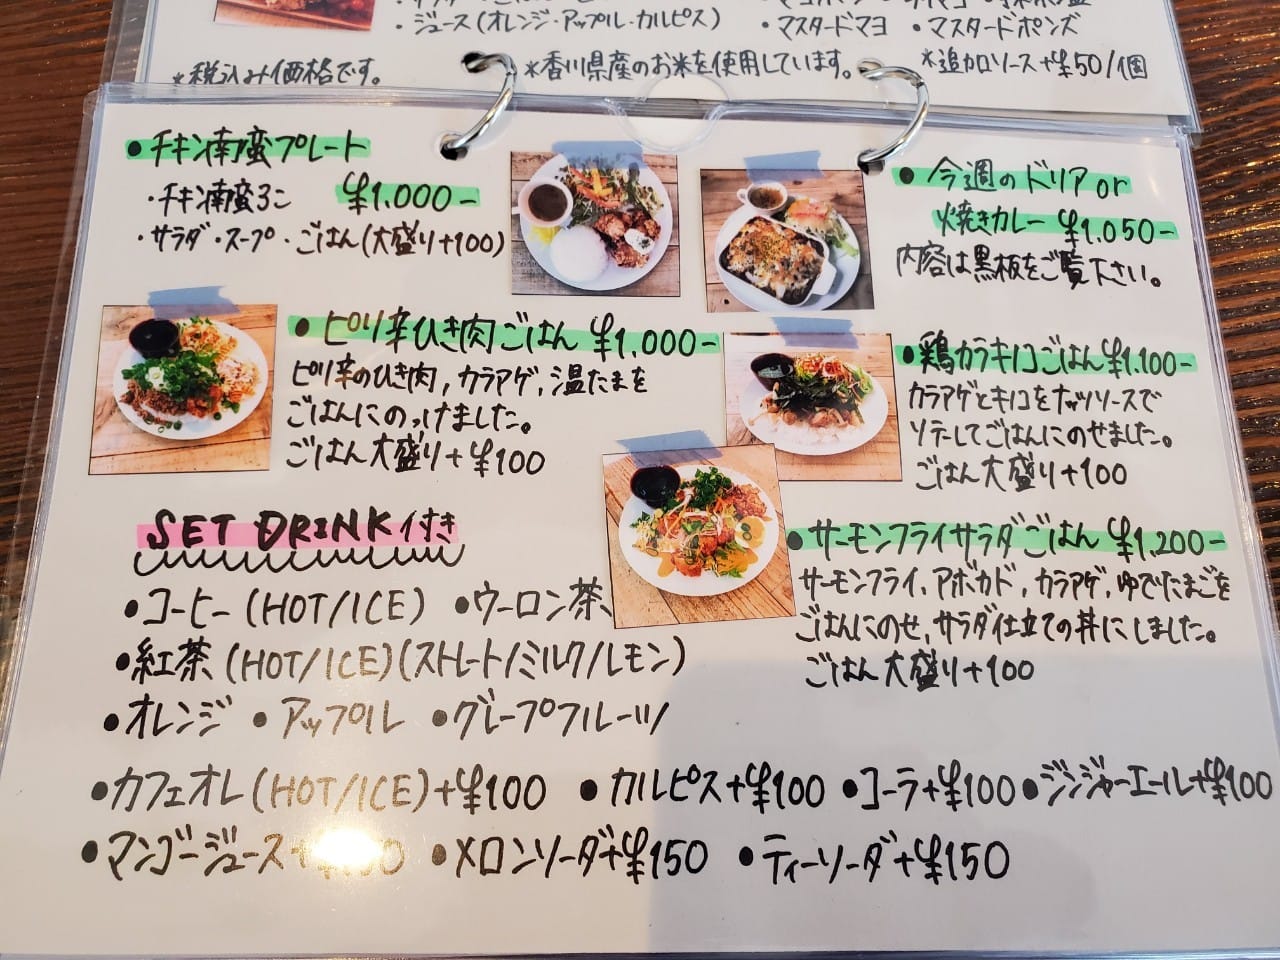 ・ジュース(オレンジ・アップル・カルピス)
・マスタードマヨ ・マスタードポンズ
*税込み価格です。
*香川県産のお米を使用しています。
*追加ソース+¥50/1個
・チキン南蛮プレート
・チキン南蛮3こ ¥1.000-
・サラダ・スープ・ごはん(大盛り+100)
・今週のドリアor
焼きカレー ¥1.050-
内容は黒板をご覧下さい。
・ピリ辛ひき肉ごはん ¥1.000-
ピリ辛のひき肉,カラアゲ,温たまを
ごはんにのっけました。
ごはん大盛り+¥100
・鶏カラキノコごはん¥1.100-
カラアゲとキノコをナッツソースで
ソテーしてごはんにのせました。
ごはん大盛り+100
・サーモンフライサラダごはん ¥1,200-
サーモンフライ,アボカド,カラアゲ,ゆでたまごを
ごはんにのせ,サラダ仕立ての丼にしました。
ごはん大盛り+100
SET DRINK付き
・コーヒー(HOT/ICE) ・ウーロン茶
・紅茶(HOT/ICE)(ストレート/ミルク/レモン)
・オレンジ ・アップル ・グレープフルーツ
・カフェオレ(HOT/ICE)+¥100 ・カルピス+¥100 ・コーラ+¥100 ・ジンジャーエール+¥100
・マンゴージュース ・メロンソーダ+¥150 ・ティーソーダ+¥150